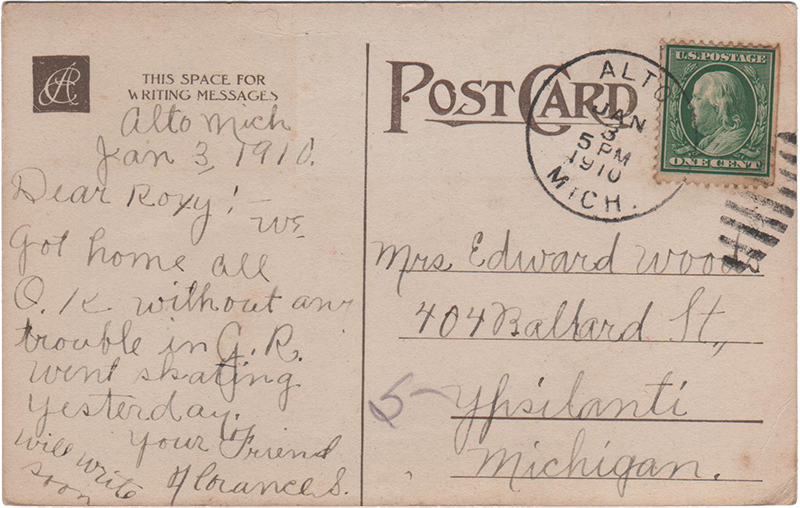 THIS SPACE FOR
WRITING MESSAGES
Alto Mich
Jan 3, 1910.
Dear Roxy! - We
Got home all
O.K without any
trouble in G.R.
went skating
yesterday.
Your Friend
Florance S.
will write
soon
POST CARD
ALTO
JAN
3
5 PM
1910
MICH.
U.S. POSTAGE
ONE CENT
Mrs Edward Woods
404 Ballard St.,
5
Ypsilanti
Michigan.